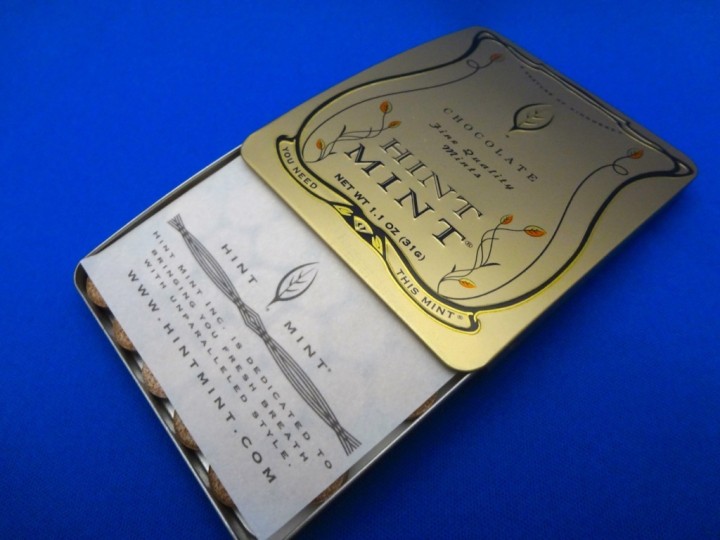 CHOCOLATE
Fine Quality
Mints
HINT
MINT®
NET WT 1.1 OZ (31G)
YOU NEED
THIS MINT®
HINT MINT®
HINT MINT INC. IS DEDICATED TO
BRINGING YOU FRESH BREATH
WITH UNPARALLELED STYLE.
WWW.HINTMINT.COM